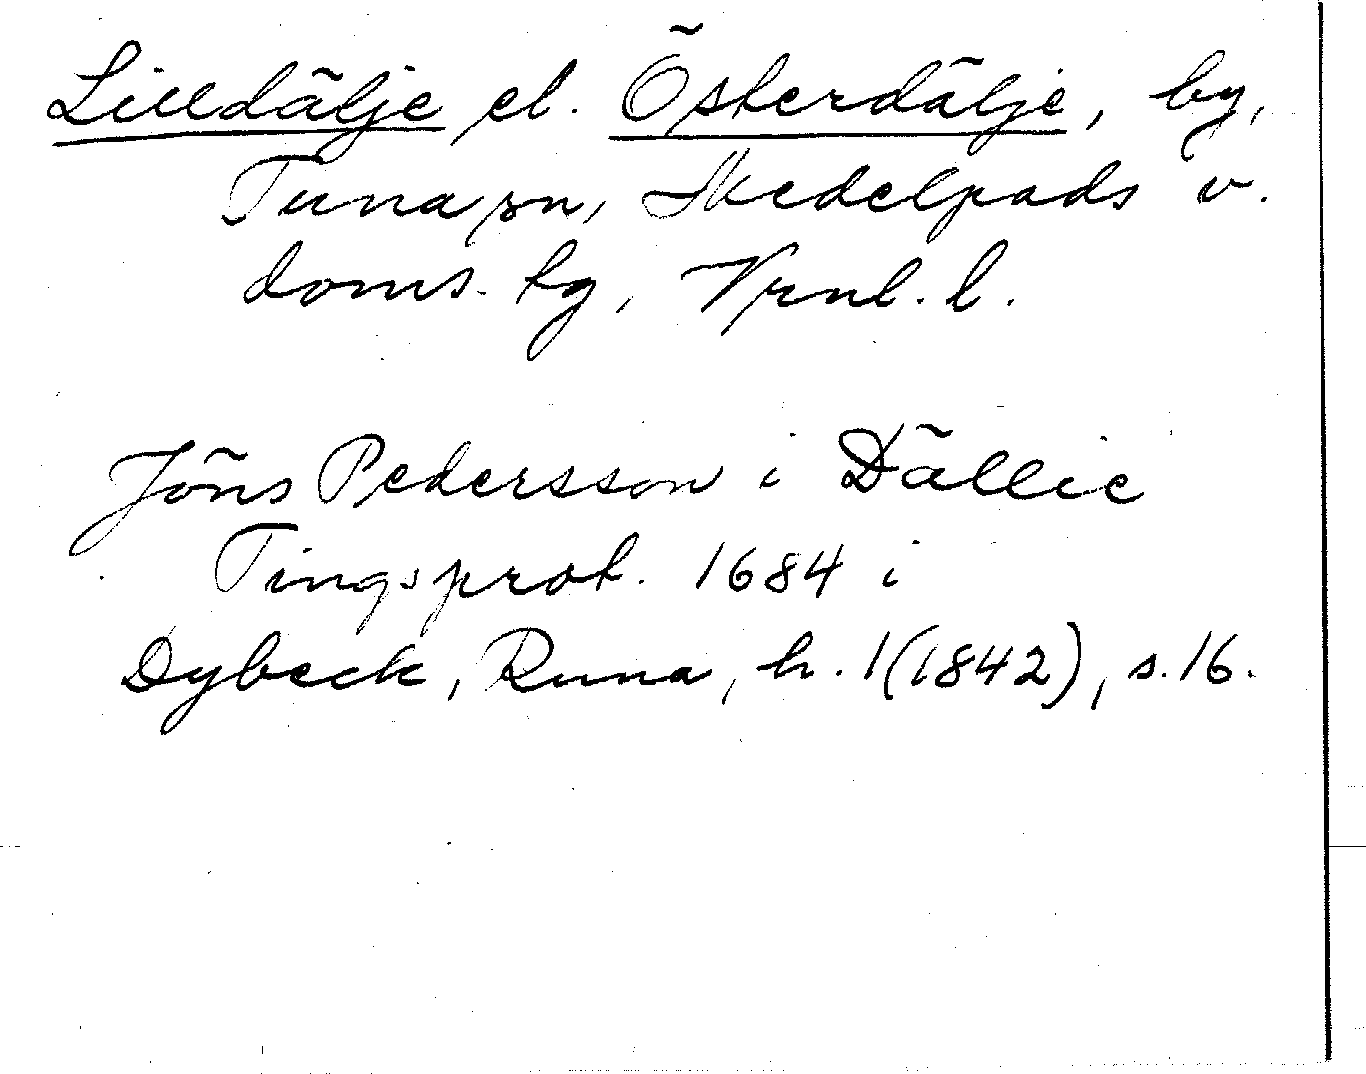 Lilldälje el. Österdälje, by,
Tuna sn, Medelpads v.
doms. tg, Vrnl. l.
Jöns Pedersson i Dällie
Tingsprot. 1684 i
Dybeck, Runa, h. 1(1842), s. 16.